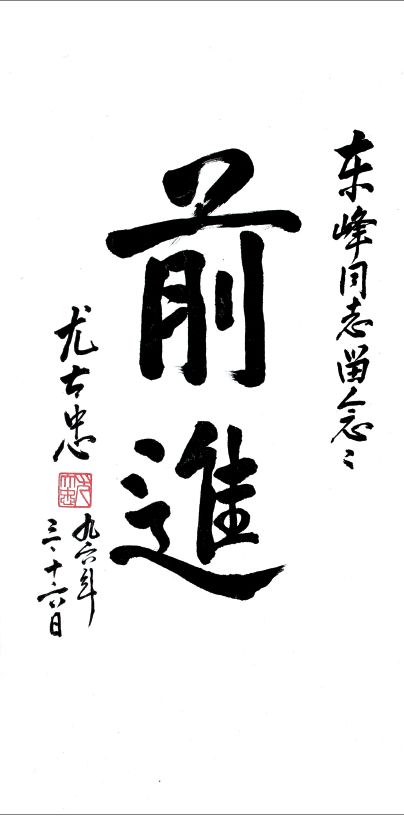 东峰同志留念
前進
尤太忠
九六年
三、十六日